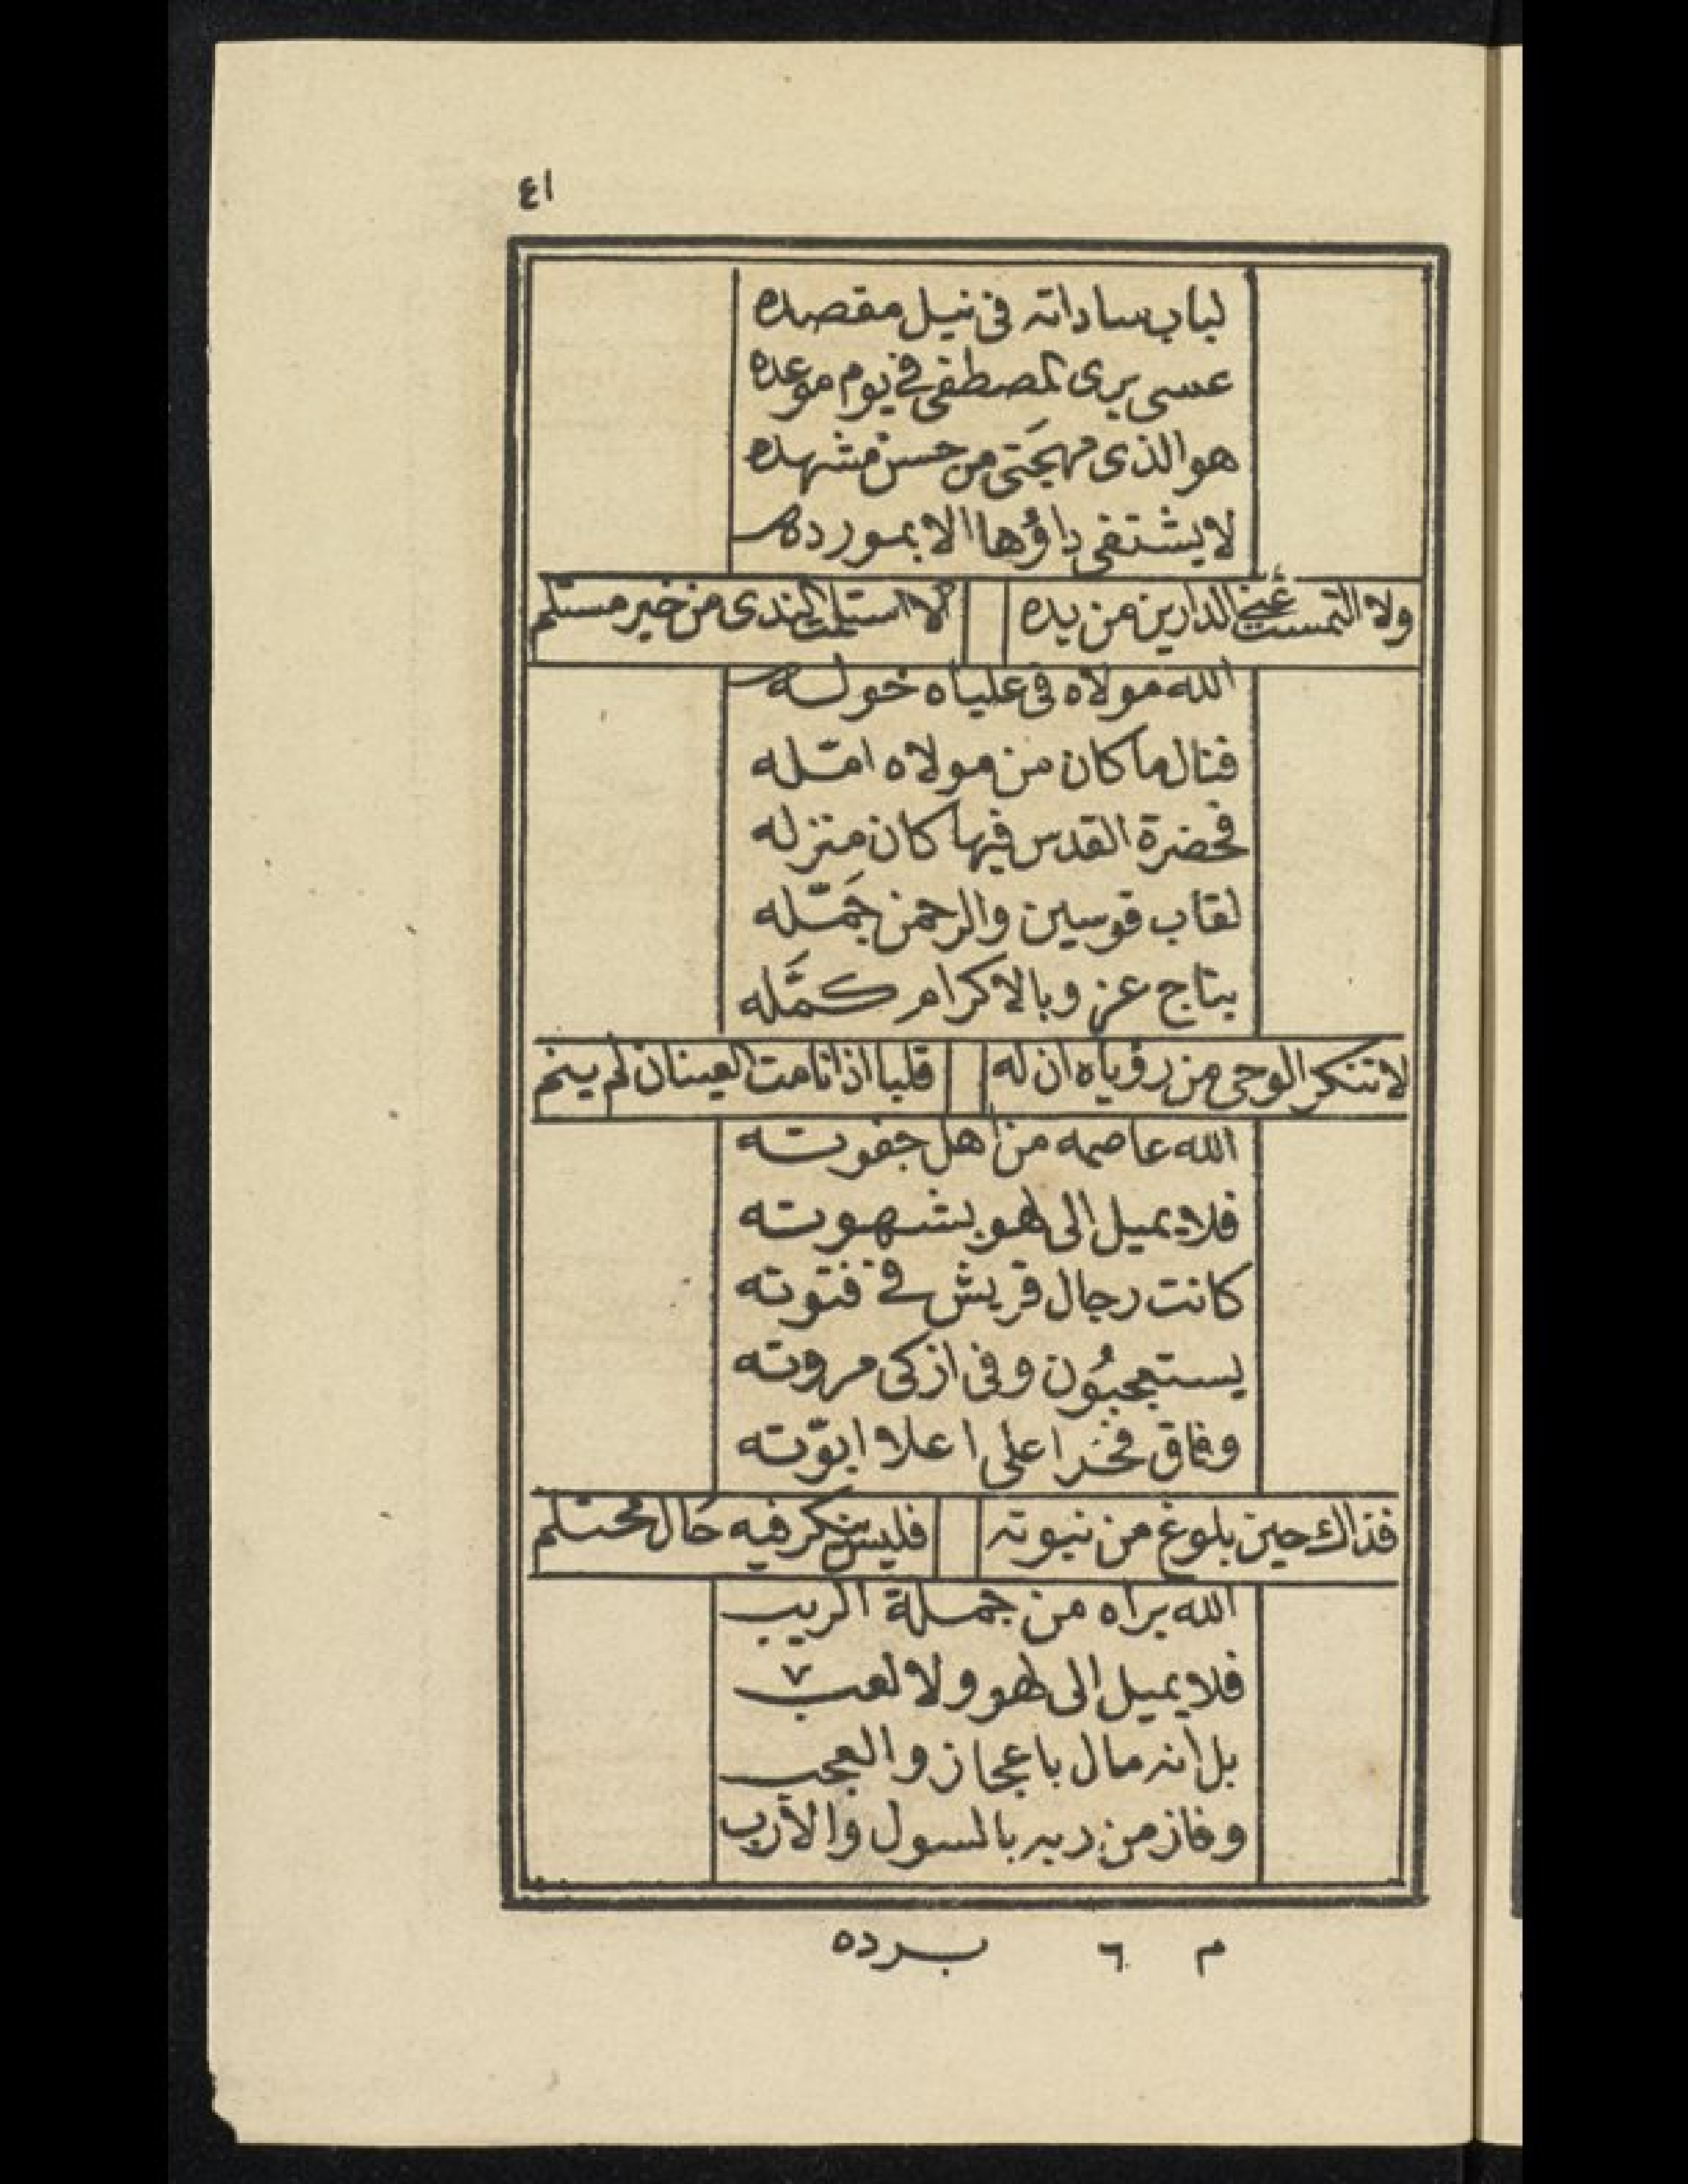 ٤١
لباب ساداته فى نيل مقصده
عسى يرى المصطفى فى يوم موعده
هو الذى مهجَتى من حسن مشهده
لا يشتفى داؤها الا بمورده
ولا التمست غنى الدارين من يده الا استلمت الندى من خير مستلم
الله مولاه فى علياه خوله
فنال ما كان من مولاه امّله
فحضرة القدس فيها كان منزله
لقاب قوسين والرحمن جَمّله
بتاج عز وبالاكرام كمَّله
لا تنكر الوحى من رؤياه ان له قلبا اذا نامت العينان لم ينم
الله عاصمه من اهل جفوته
فلا يميل الى لهو بشهوته
كانت رجال قريش فى فتوته
يستعجبُون وفى ازكى مروته
وفاق فخرا على اعلا ابوّته
فذاك حين بلوغ من نبوته فليس ينكر فيه حَال محتلم
الله براه من جملة الريب
فلا يميل الى لهو ولا لعب
بل انه مال باعجاز والعجب
وفاز من ربه بالسول والأرب
م ٦ برده